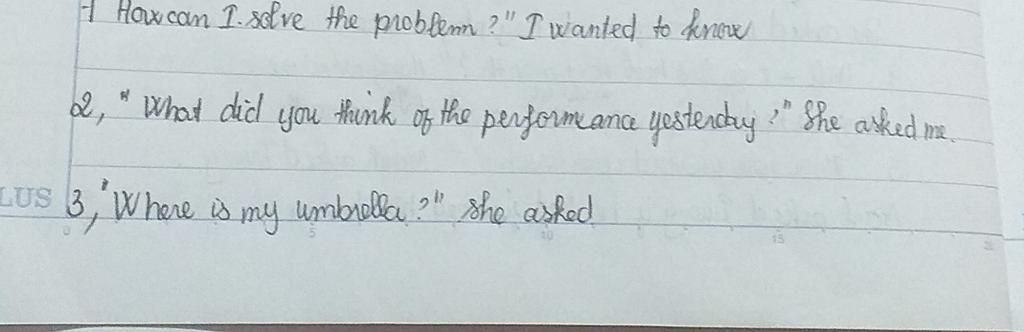 1 How can I solve the problem?" I wanted to know
2, "What did you think of the performance yesterday?" She asked me.
LUS 3, "Where is my umbrella?" she asked
0 5 10 15